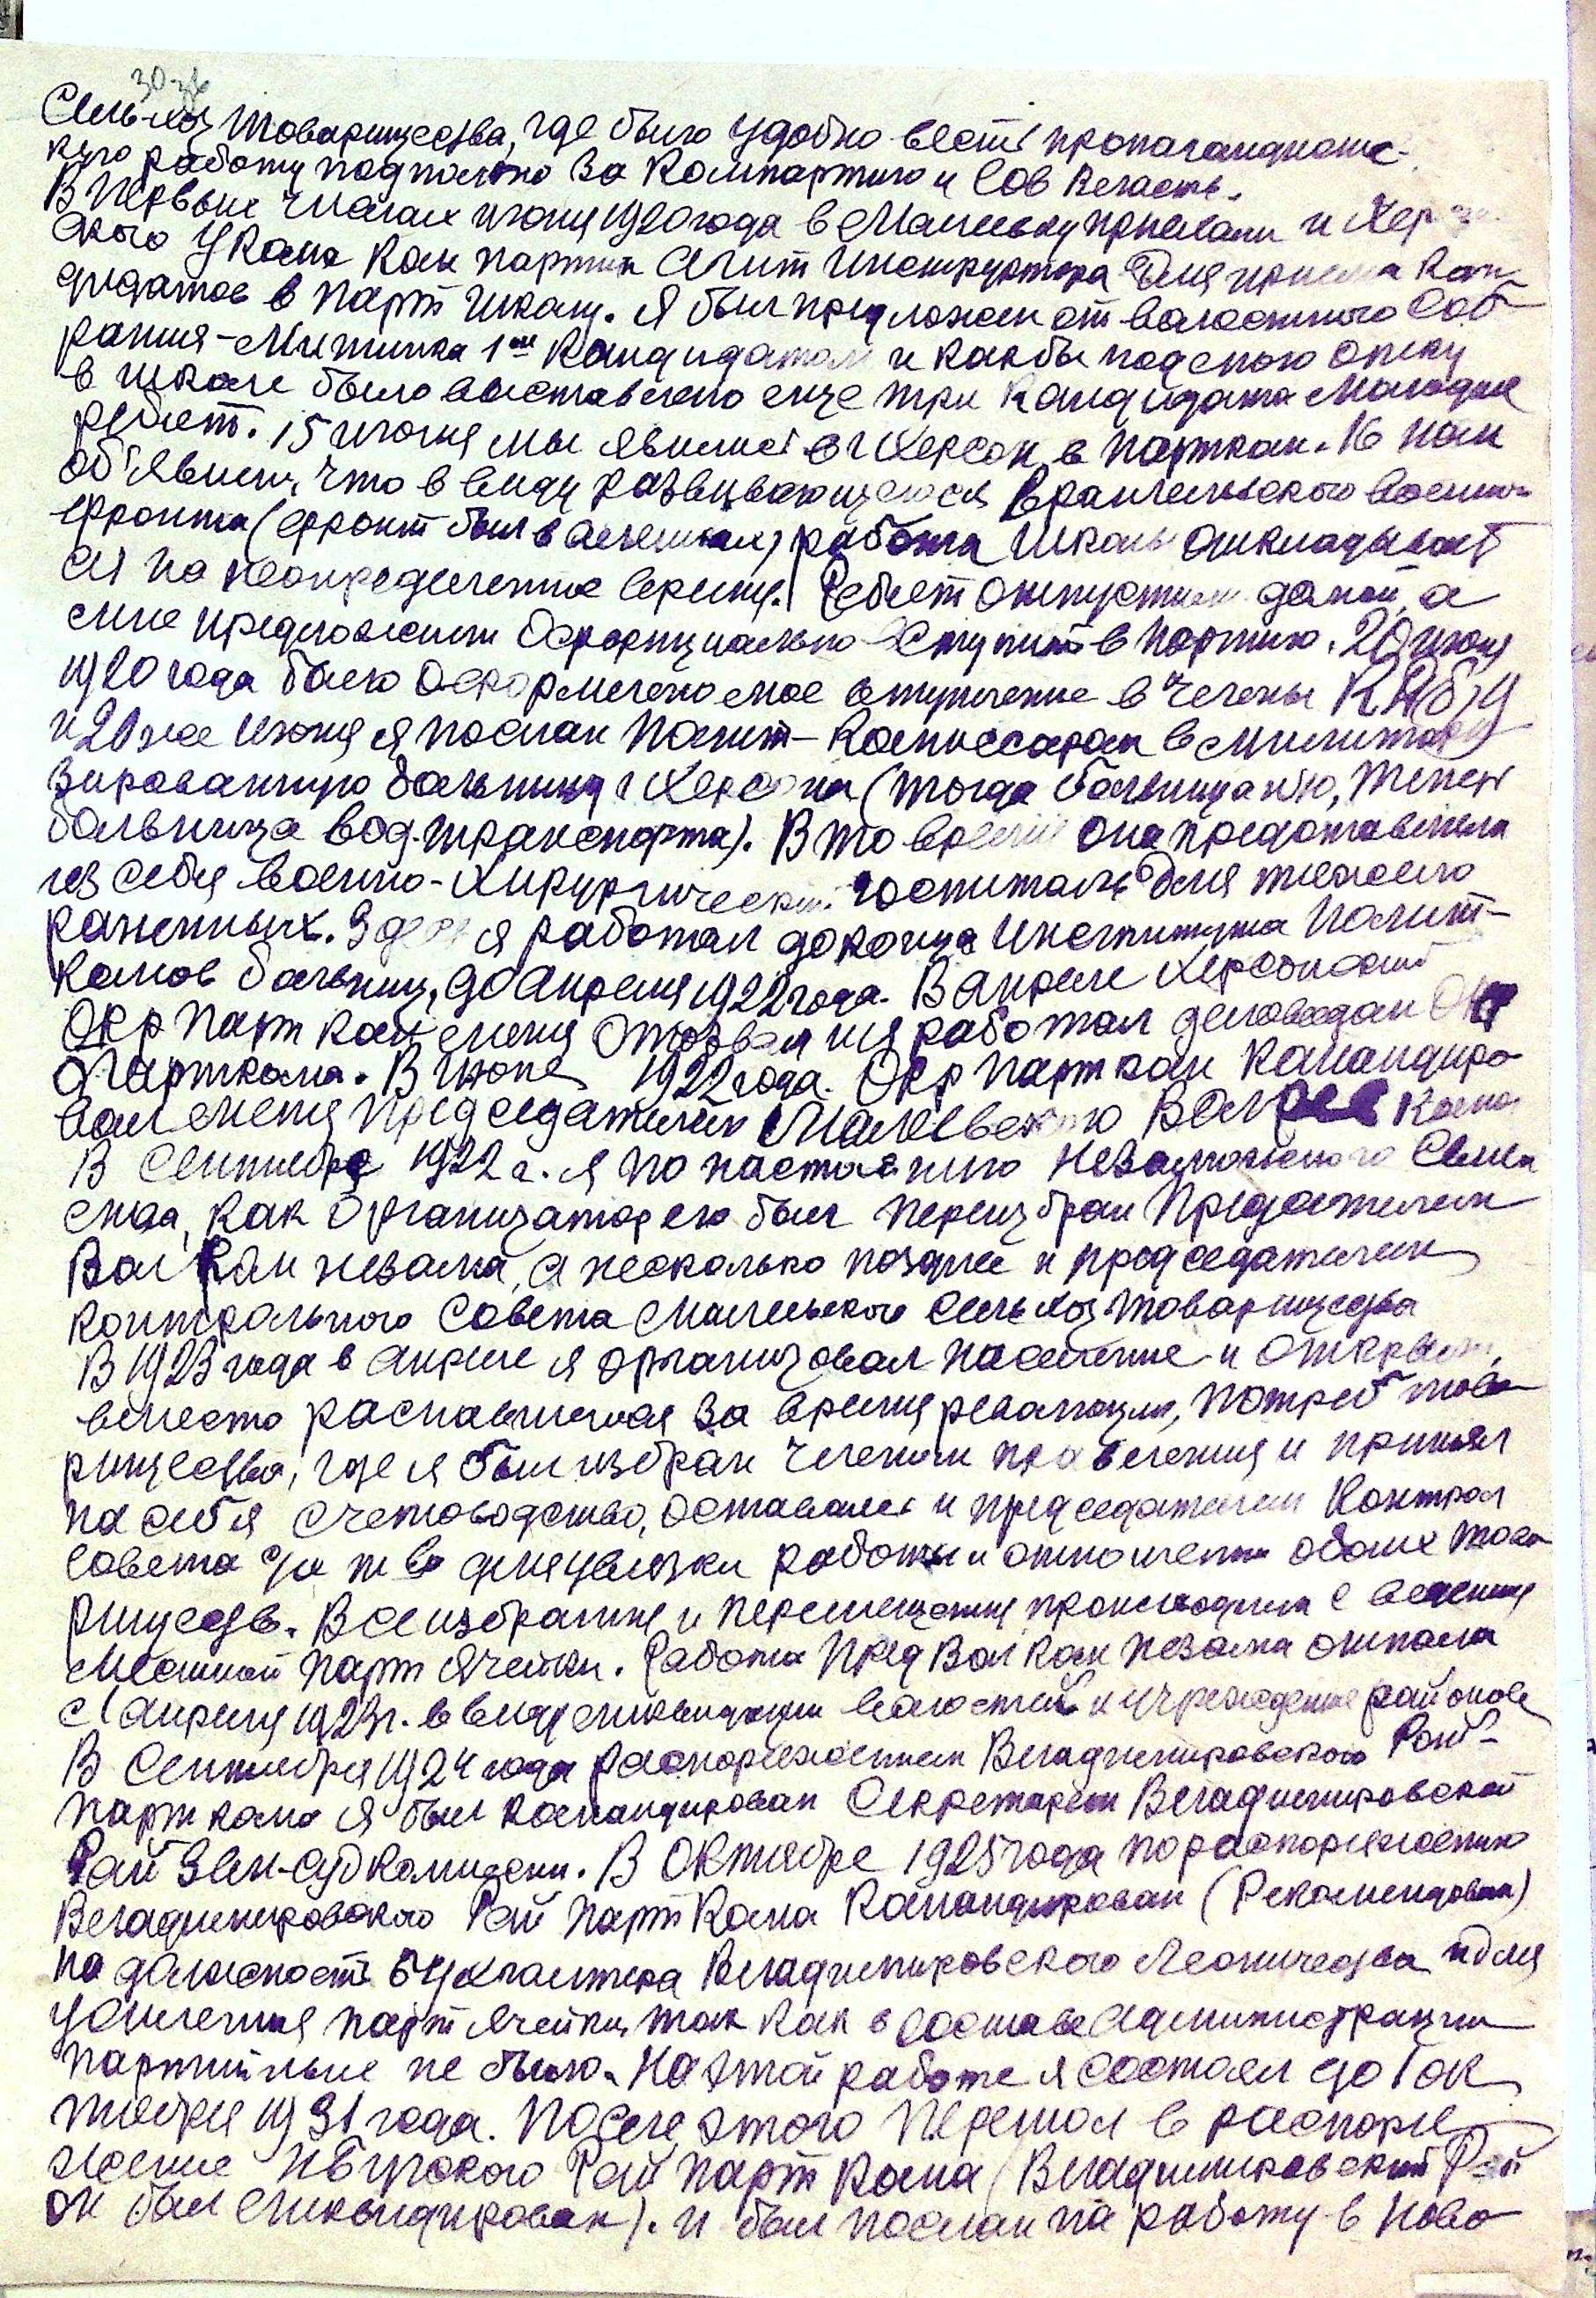 Сель-хоз товарищества, где было удобно вести пропагандистс-
кую работу подпольно за Компартию и Сов Власть.
В Первых числах июня 1920 года в приехали и Херсон
ского Укома Ком партии Агит Инструктора для приема кан
дидатов в Парт Школу. Я был предложен от волостного Соб-
рания-Митинга 1ым кандидатом и как бы под мою опеку
в школе было выставлено еще три кандидата молодые
ребят. 15 июня мы явились в г Херсон в Партком. 16 нам
об'явили, что в виду развивающегося Врангельского военного
фронта (фронт был в Алешках) работа Школы откладывает
ся на неопределенное время. Ребят отпустили домой, а
мне предложили официально вступить в партию. 20 июня
1920 года было оформлено мое вступление в члены КП(б)У
и 20 же июня я послан Полит-Комиссаром в милитари
зированную больницу г Херсона (тогда больница, теперь
больница вод-транспорта). В то время она представляла
из себя военно-хирургический госпиталь для тяжело
раненных. Здесь я работал до конца Института Полит-
комов больниц, до апреля 1922 года. В апреле Херсонский
Окр Парт Ком меня отозвал и я работал деловодом Окр
Парткома. В июне 1922 года Окр Парт ком командиро
вал меня Председателем Волрев кома
В Сентябре 1922 г. я по настоянию Незаможного Селян
ства, как организатор его был переизбран Председателем
Вол Ком незама, а несколько позднее и председателем
контрольного Совета Сель хоз товарищества
В 1923 года в апреле я организовал население и открыли,
вместо распавшегося за время революции, потреб това
рищество, где я был избран членом правления и принял
на себя счетоводство, оставаясь и председателем Контрол
Совета с/х т-ва для увязки работы и отношения обоих това
риществ. Все избрание и перемещения происходили с ведения
местной парт ячейки. Работа Пред Вол Ком незама отпала
с 1 апреля 1923 г. в виду ликвидации волостей и учреждение районов
В Сентябре 1924 года распоряжением Владимировского Рай-
парткома я был командирован Секретарем Владимировской
Рай Зем-суд комиссии. В Октябре 1925 года по распоряжению
Владимировского Рай парт Кома командирован (Рекомендован)
на должность бухгалтера Владимировского Лесничества и для
усиления парт ячейки, так как в составе администрации
партийных не было. На этой работе я состоял до 1 Ок
тября 1931 года. После этого перешол в распоря
жение Н Бугского Рай парт Кома (Владимировский Рай
он был ликвидирован). и был послан на работу в Ново